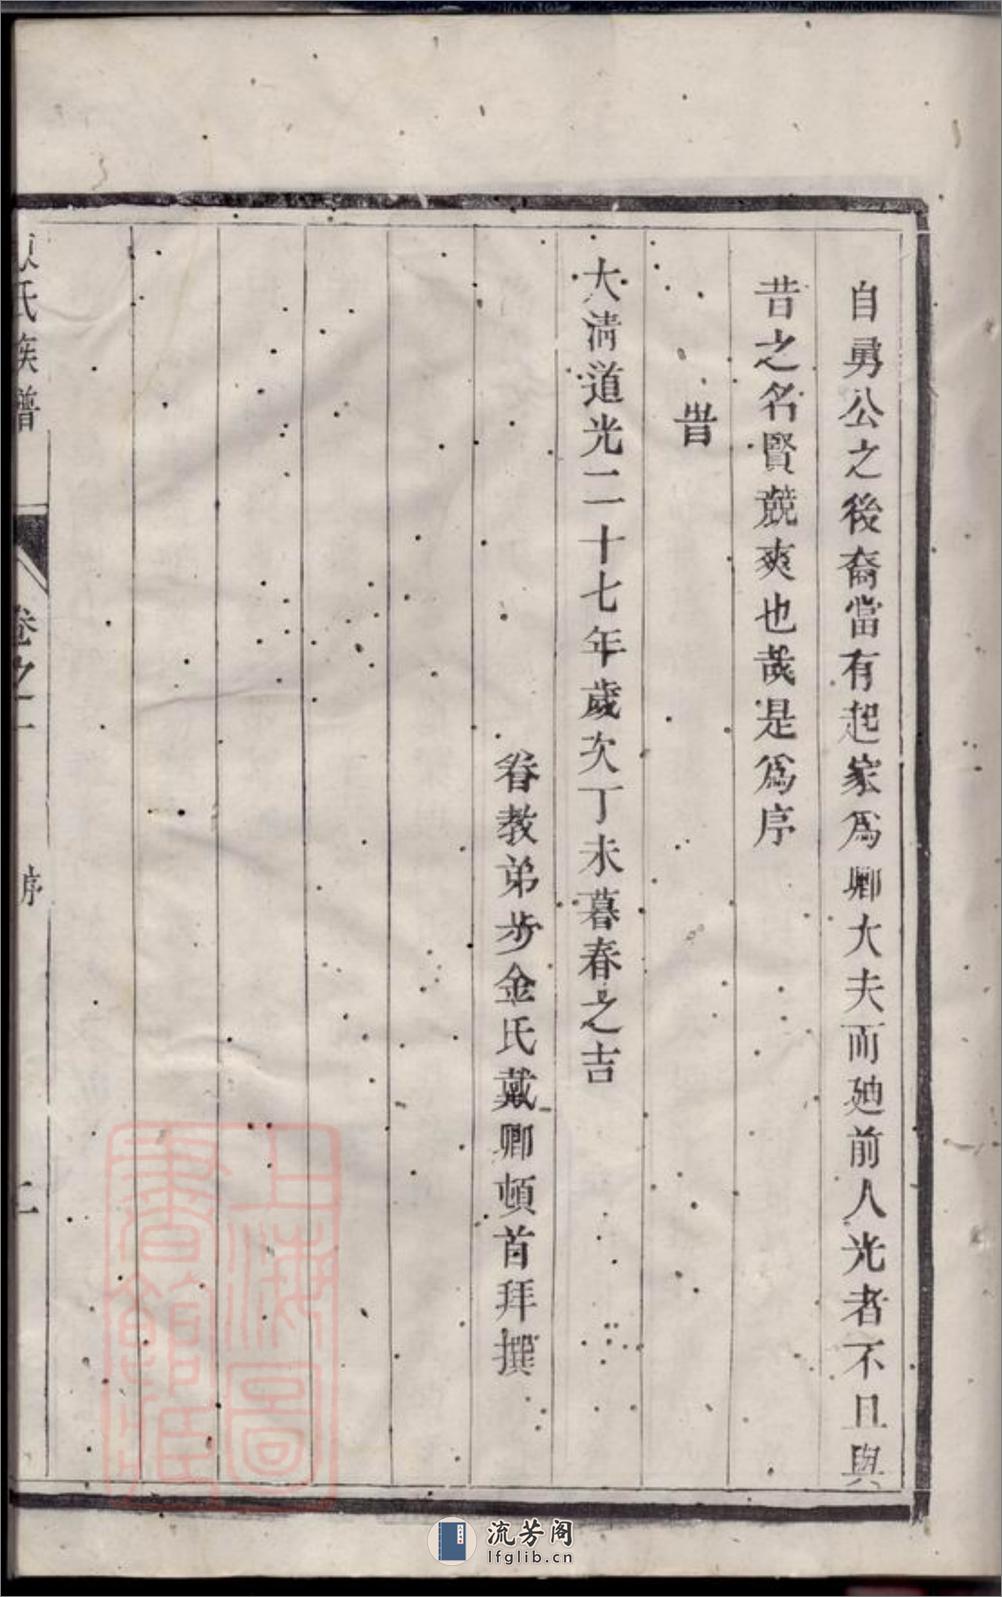 自勇公之後裔當有起家爲卿大夫而廸前人光者不且與
昔之名賢競爽也哉是爲序
旹
大淸道光二十七年歲次丁未暮春之吉
眷教弟步金氏戴卿頓首拜撰
氏族譜
卷之一
序
二
上海圖
書館藏
流芳阁
lfglib.cn